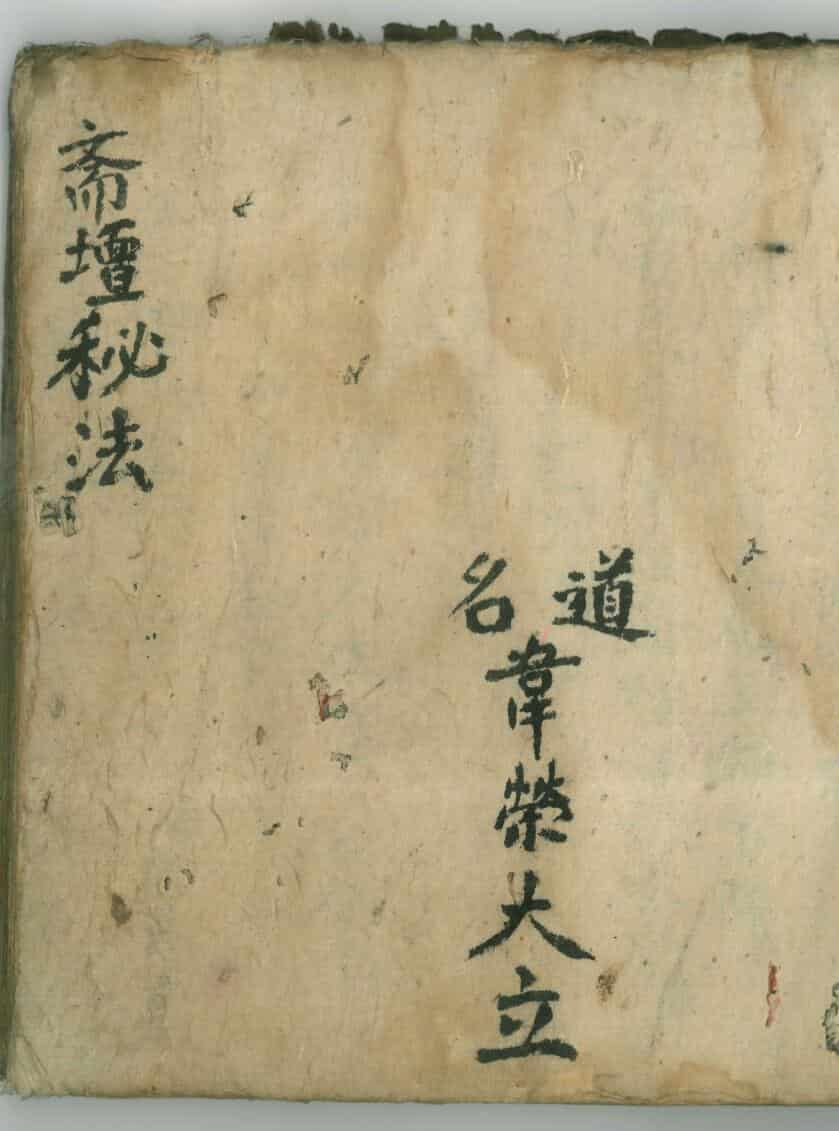 道名
韋榮大立
斎壇秘法